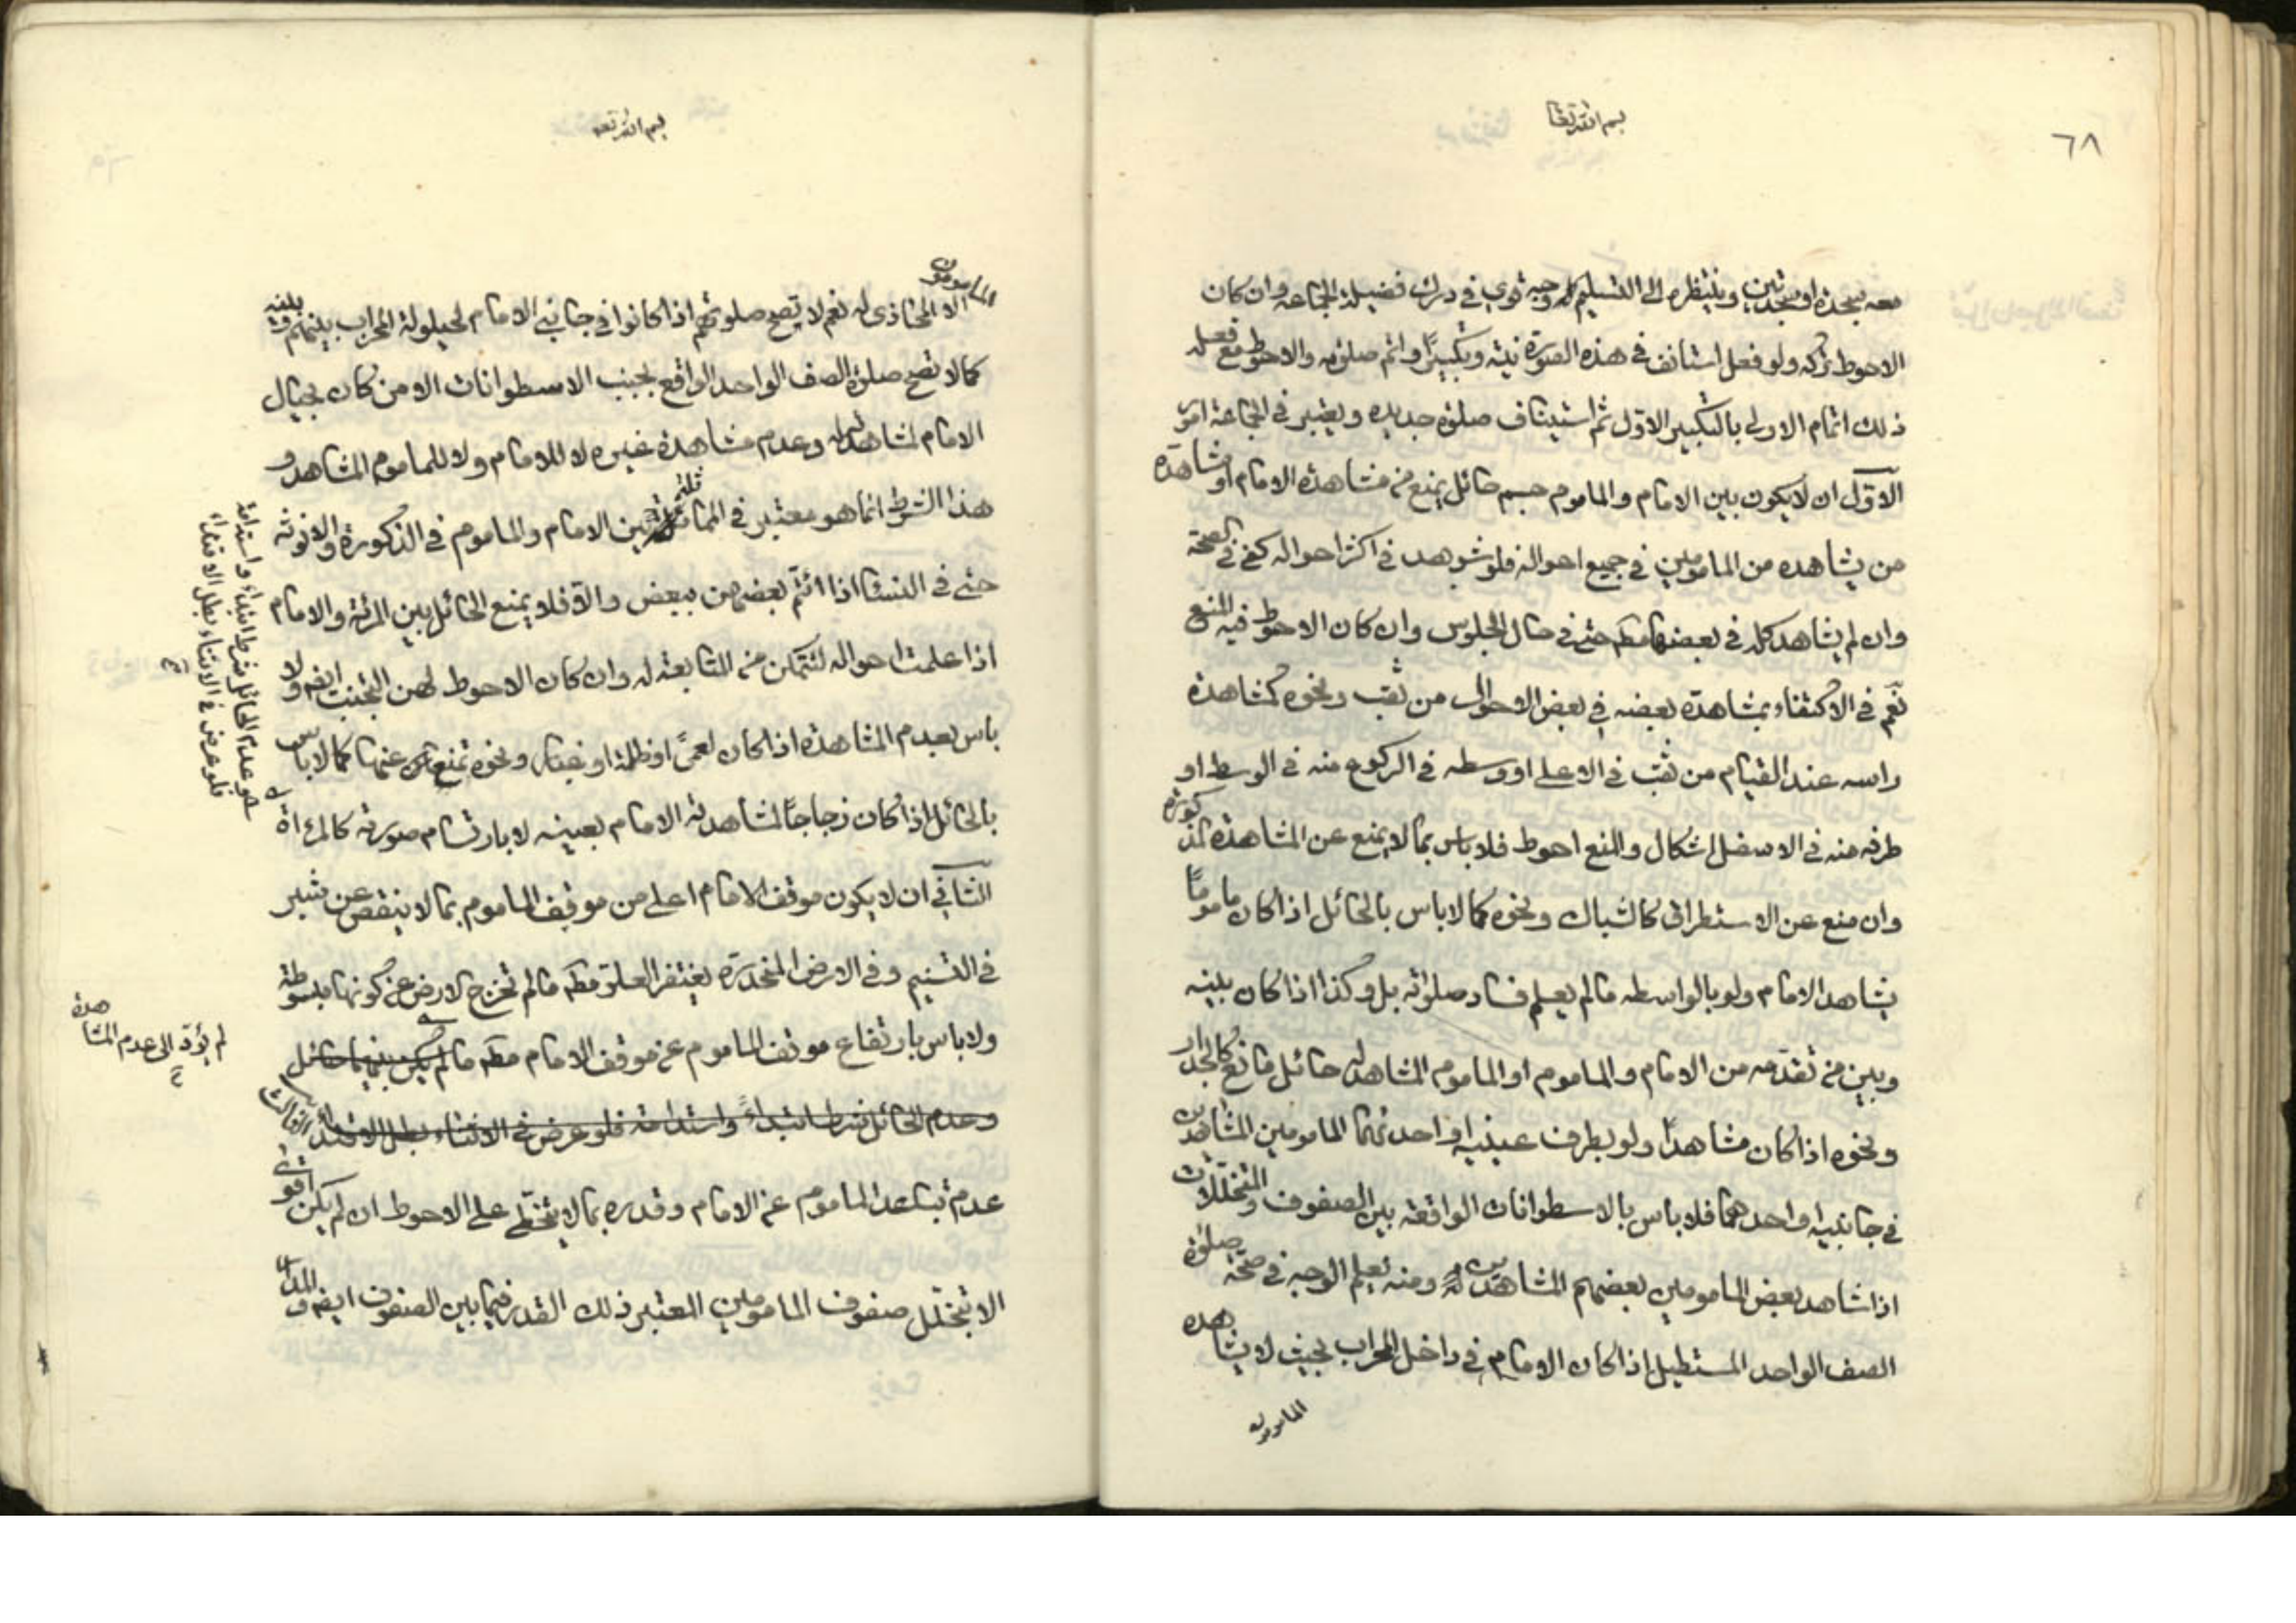 ٦٨
بسم الله تعالى
معه بسجدة او بسجدتين وينتظره الى التسليم كله وجه قوي في درك فضيلة الجماعة وان كان
الاحوط تركه ولو فعل استانف في هذه الصورة نية وتكبيرًا واتم صلوته والاحوط مع فعله
ذلك اتمام الاولى بالتكبير الاول ثم استيناف صلوة جديدة ويعتبر في الجماعة امور
الاوّل ان لا يكون بين الامام والماموم جسم حائل يمنع من مشاهدة الامام او مشاهدة
من يشاهده من المامومين في جميع احواله فلو شوهد في اكثر احواله كفى في الصحة
وان لم يشاهد كله في بعضها مطم حتى في حال الجلوس وان كان الاحوط فيه المنع
نعم في الاكتفاء بمشاهدة بعضه في بعض الاحوال من ثقب ونحوه كمشاهدة
راسه عند القيام من ثقب في الاعلى او وسطه في الركوع منه في الوسط او
طرفه منه في الاسفل اشكال والمنع احوط فلا باس بما لا يمنع عن المشاهدة المذكورة
وان منع عن الاستطراق كالشباك ونحوه كما لا باس بالحائل اذا كان ماموما
يشاهد الامام ولو بالواسطه مالم يعلم فساد صلوته بل وكذا اذا كان بينه
وبين من تقدّمه من الامام والماموم او الماموم المشاهد له حائل مانع كالجدار
ونحوه اذا كان مشاهدًا ولو بطرف عينيه او احدهما المامومين المشاهدين
في جانبيه او احدهما فلا باس بالاسطوانات الواقعة بين الصفوف والمتخللات
اذا شاهد بعض المامومين بعضهم المشاهدين له ومنه يعلم الوجه في صحة صلوة
الصف الواحد المستطيل اذا كان الامام في داخل المحراب بحيث لا يشاهده
المامومون
بسم الله تعه
المامومون
الا المحاذى له نعم لا تصح صلوتهم اذا كانوا في جانبي الامام لحيلولة المحراب بينهم وبينه
كما لا تصح صلوة الصف الواحد الواقع بجنب الاسطوانات الا من كان بحيال
الامام لمشاهدته له وعدم مشاهدة غيره لا للامام ولا للماموم المشاهد و
هذا الشرط انما هو معتبر في المماثلة بين الامام والماموم في الذكورة والانوثة
حتى في النساء اذا ائتم بعضهن ببعض والّا فلا يمنع الحائل بين المرئة والامام
اذا علمت احواله لتتمكن من المتابعة له وان كان الاحوط لهن التجنب ايضم ولا
باس بعدم المشاهدة اذا كان لعمىً او ظلمة او غبار ونحوه تمنع عنها كما لا باس
بالحائل اذا كان زجاجًا لمشاهدته الامام بعينه لا بارتسام صورته كالمرءاة
الثاني ان لا يكون موقف الامام اعلى من موقف الماموم بما لا ينقص عن شبر
في التسنيم وفي الارض المنحدرة يغتفر العلو مطم مالم تخرج الارض عن كونها مبسوطة
ولا باس بارتفاع موقف الماموم عن موقف الامام مطم مالم يكن بينهما حائل
وعدم الحائل شرط ابتداءً واستدامة فلو عرض في الاثناء بطل الاقتداء الثالث
عدم تباعد الماموم عن الامام وقدره بما لا يتخطّى على الاحوط ان لم يكن اقوى
الا بتخلّل صفوف المامومين المعتبر ذلك القدر فيما بين الصفوف ايضم و
هو عدم الحائل شرط ابتداء واستدامة
فلو عرض في الاثناء بطل الاقتداء
لم يؤدّ الى عدم المشاهدة